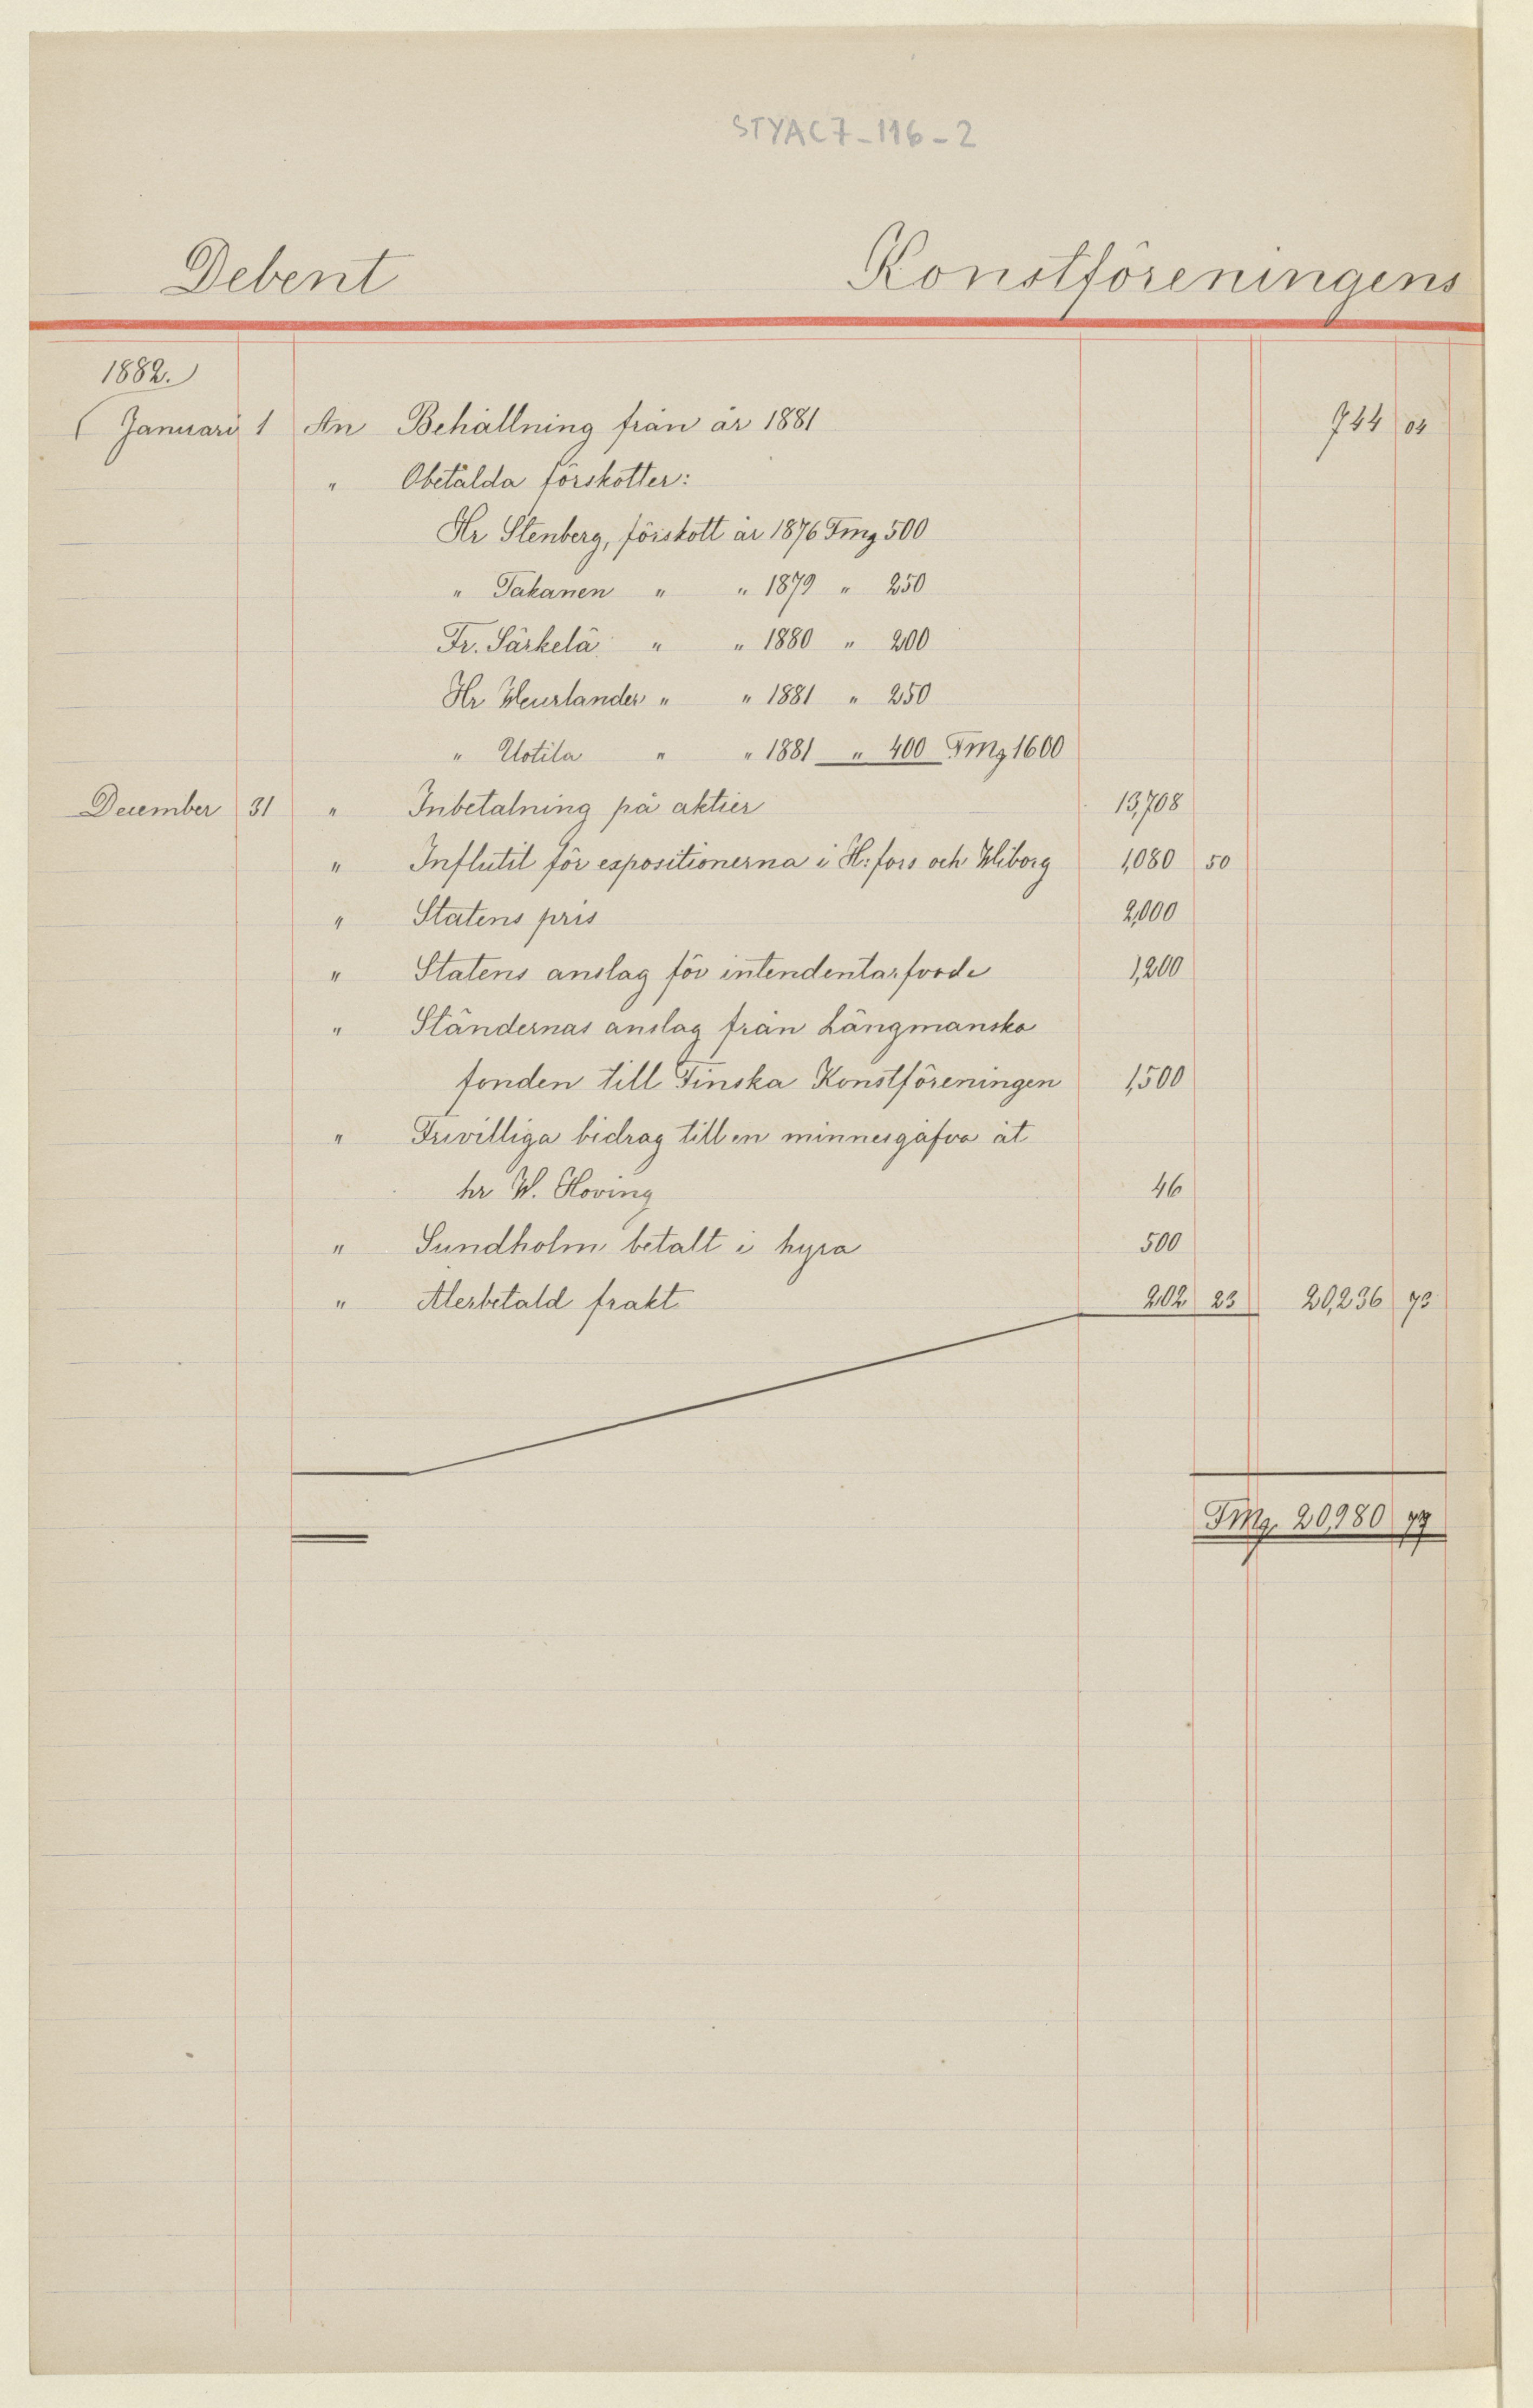 STYAC7-116-2
Debent Konstföreningens
1882.
Januari 1 An Behållning från år 1881 744 04
" Obetalda förskotter:
Hr Stenberg, förskott år 1876 Fmg 500
" Takanen " " 1879 " 250
Fr. Särkelä " " 1880 " 200
Hr Weurlander " " 1881 " 250
" Uotila " " 1881 " 400 Fmg 1600
December 31 " Inbetalning på aktier 13,708
" Influtit för expositionerna i H:fors och Wiborg 1,080 50
" Statens pris 2,000
" Statens anslag för intendentarfvode 1,200
" Ständernas anslag från Längmanska
fonden till Finska Konstföreningen 1,500
" Frivilliga bidrag till en minnesgåfva åt
hr W. Hoving 46
" Sundholm betalt i hyra 500
" Återbetald frakt 202 23 20,236 73
Fmg. 20,980 77